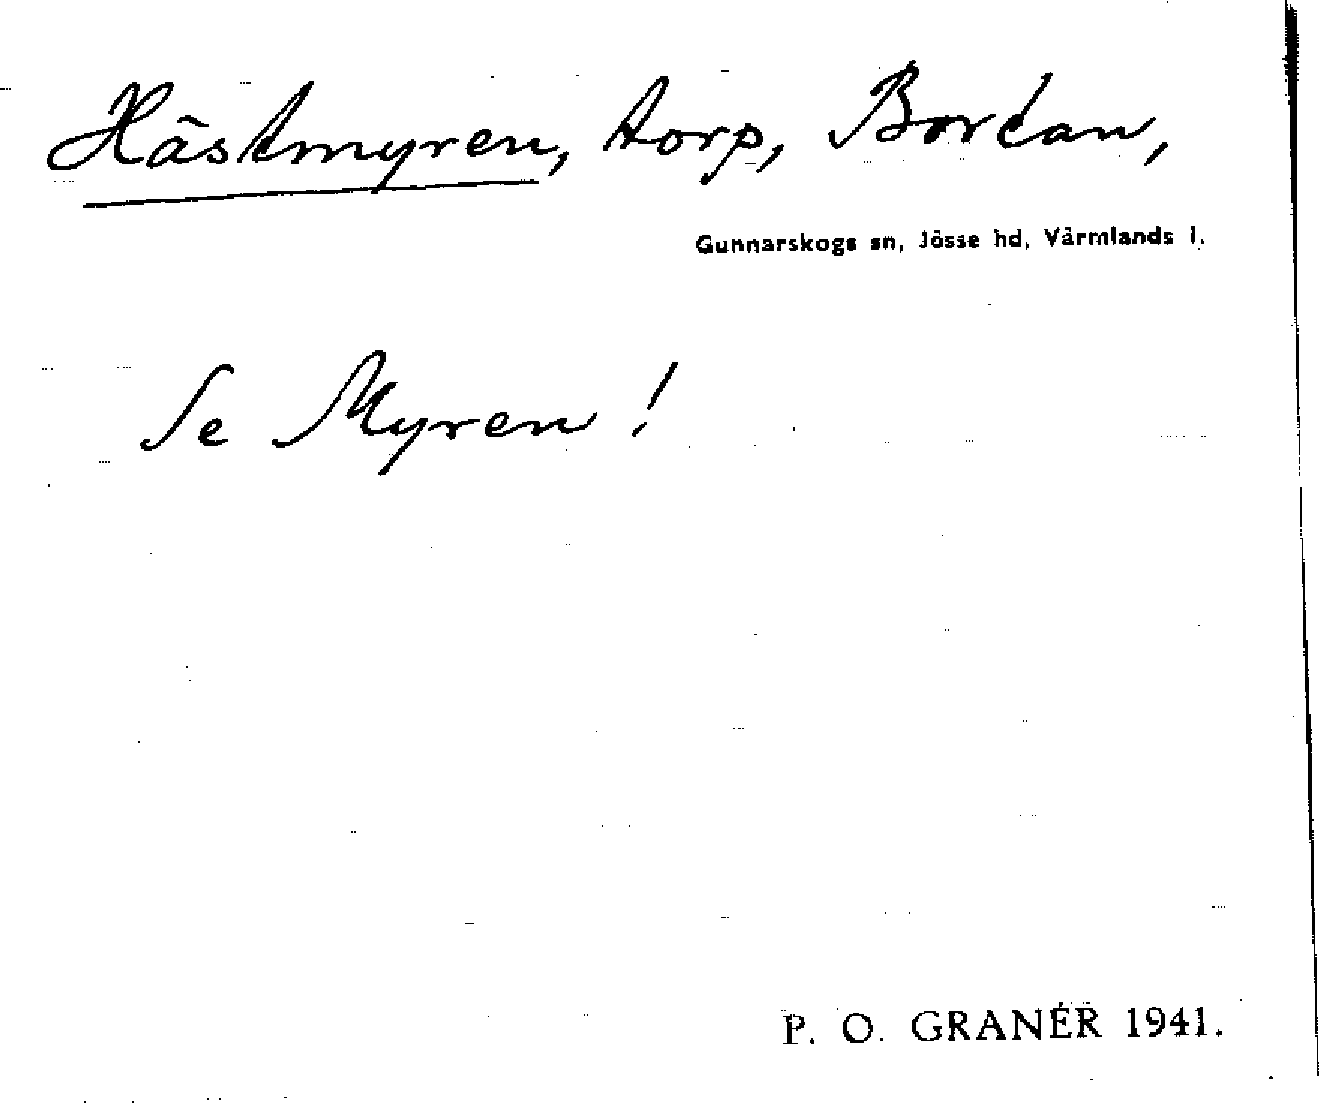 Hästmyren, torp, Bortan,
Gunnarskogs sn, Jösse hd, Värmlands l.
Se Myren!
P. O. GRANÉR 1941.